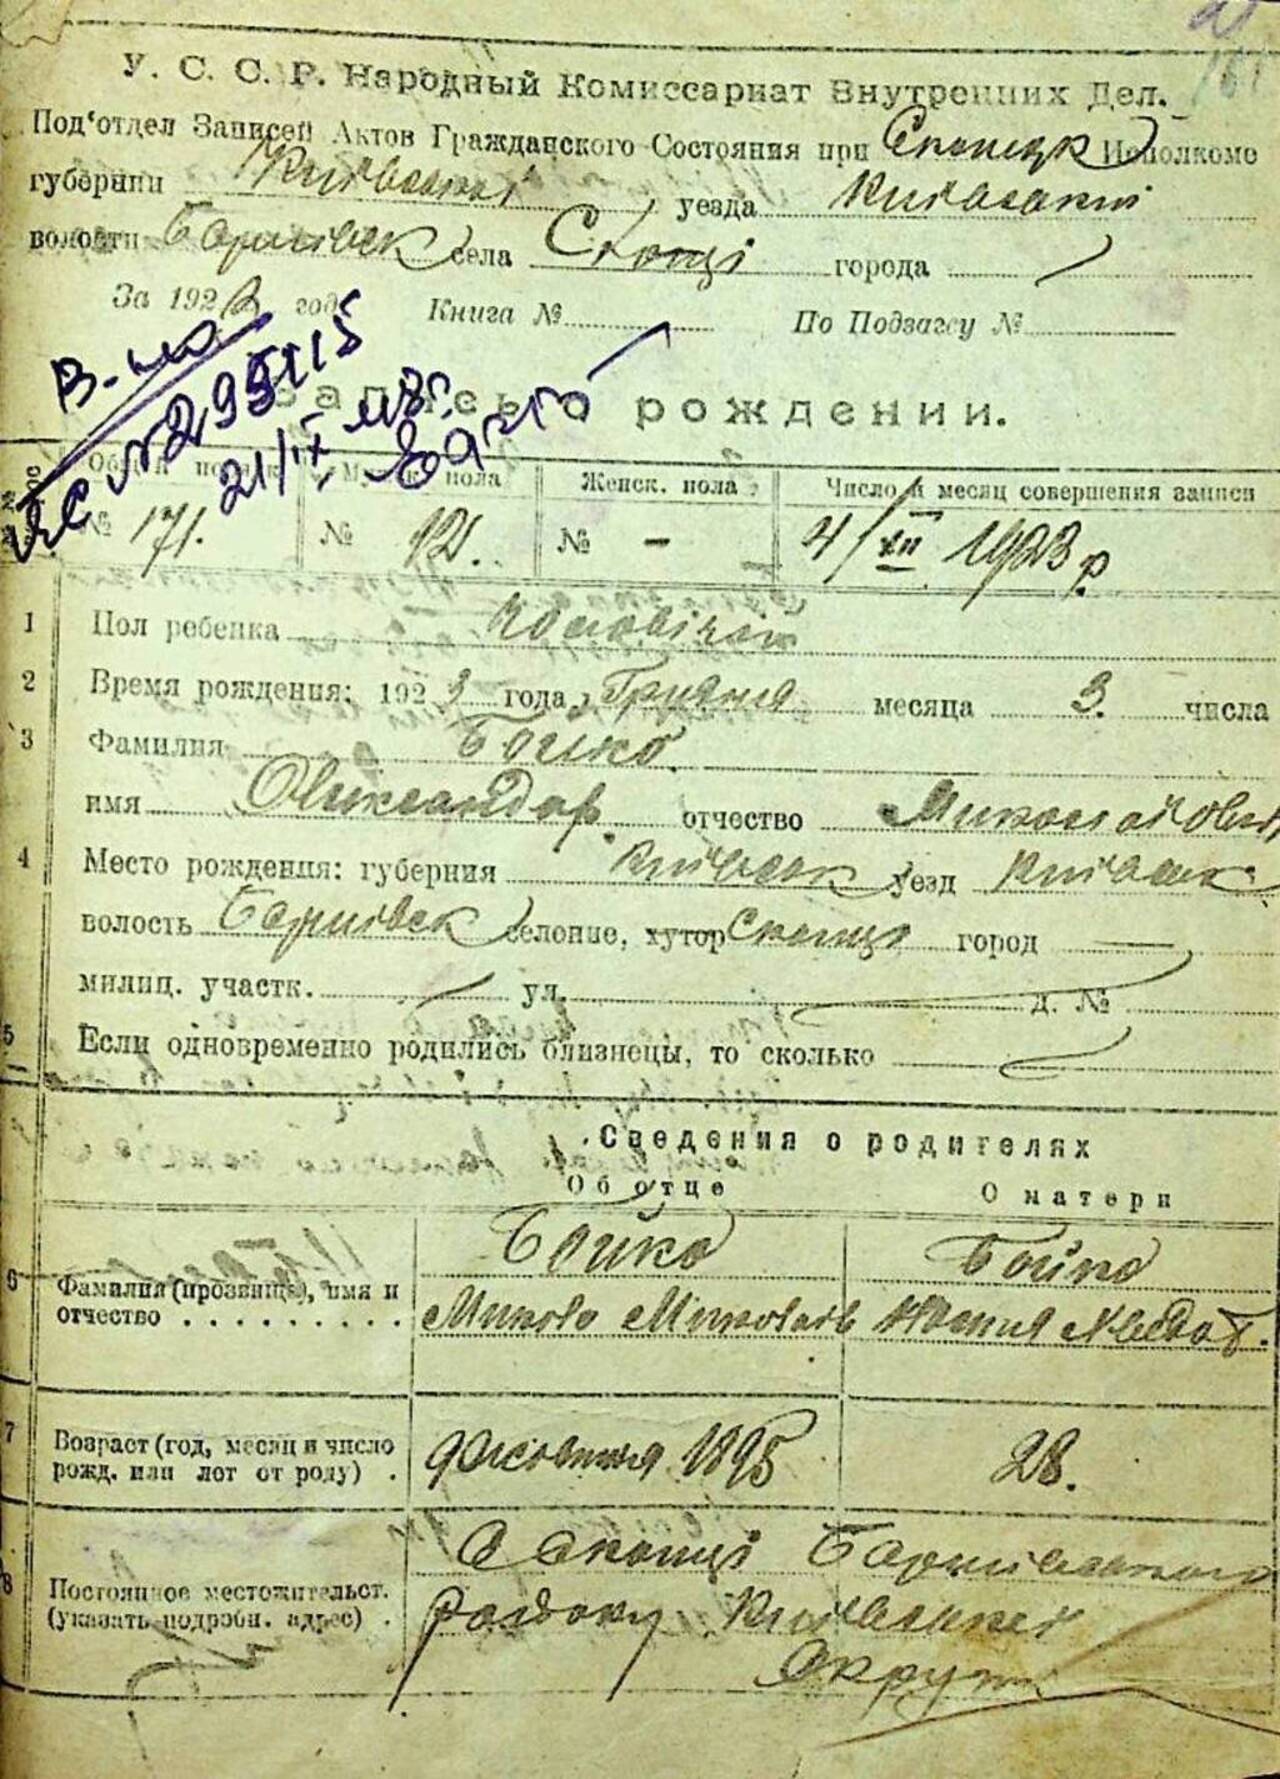 У. С. С. Р. Народный Комиссариат Внутренних Дел.
Под'отдел Записей Актов Гражданского Состояния при Скопецк Исполкоме
губернии Київської уезда Київський
волости Баришівськ села Скопці города
За 1923 год Книга № По Подзагсу №
Запись о рождении.
№ 299115
21/IX
Общий поряд. Мужск. пола Женск. пола Число и месяц совершения записи
№ 171. № № - 4/XII 1923 р
1 Пол ребенка Чоловічий
2 Время рождения: 1923 года, Грудня месяца 3. числа
3 Фамилия Бойко
имя Олександр отчество Миколайович
4 Место рождения: губерния Київськ уезд Київськ
волость Баришівськ селение, хутор Скопці город
милиц. участк. ул. д. №
5 Если одновременно родились близнецы, то сколько
Сведения о родителях
Об отце О матери
6 Фамилия (прозвище), имя и отчество Бойко Микола Бойко
7 Возраст (год, месяц и число рожд. или лет от роду) жовтня 1895 28.
8 Постоянное местожительст. (указать подробн. адрес) С Скопці Баришівського
району Київської
Округи